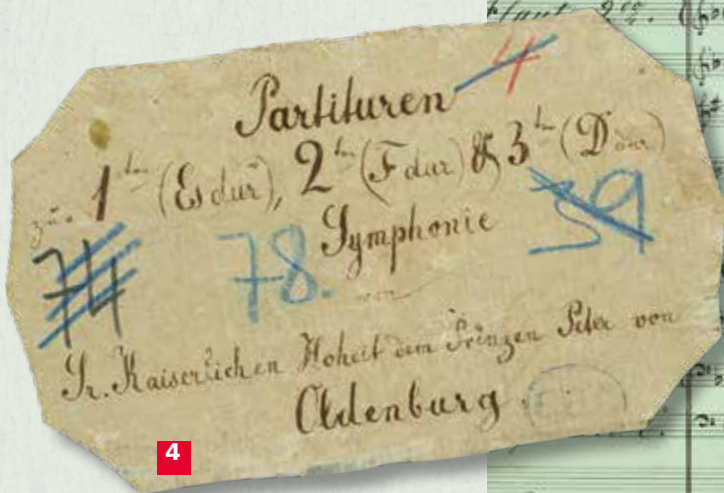 Flaut. 2do.
Partituren 4
zu. 1ten (Es dur), 2ten (F dur) & 3ten (D dur)
74 78. Symphonie 59
von
Sr. Kaiserlichen Hoheit dem Prinzen Peter von
Oldenburg.
4